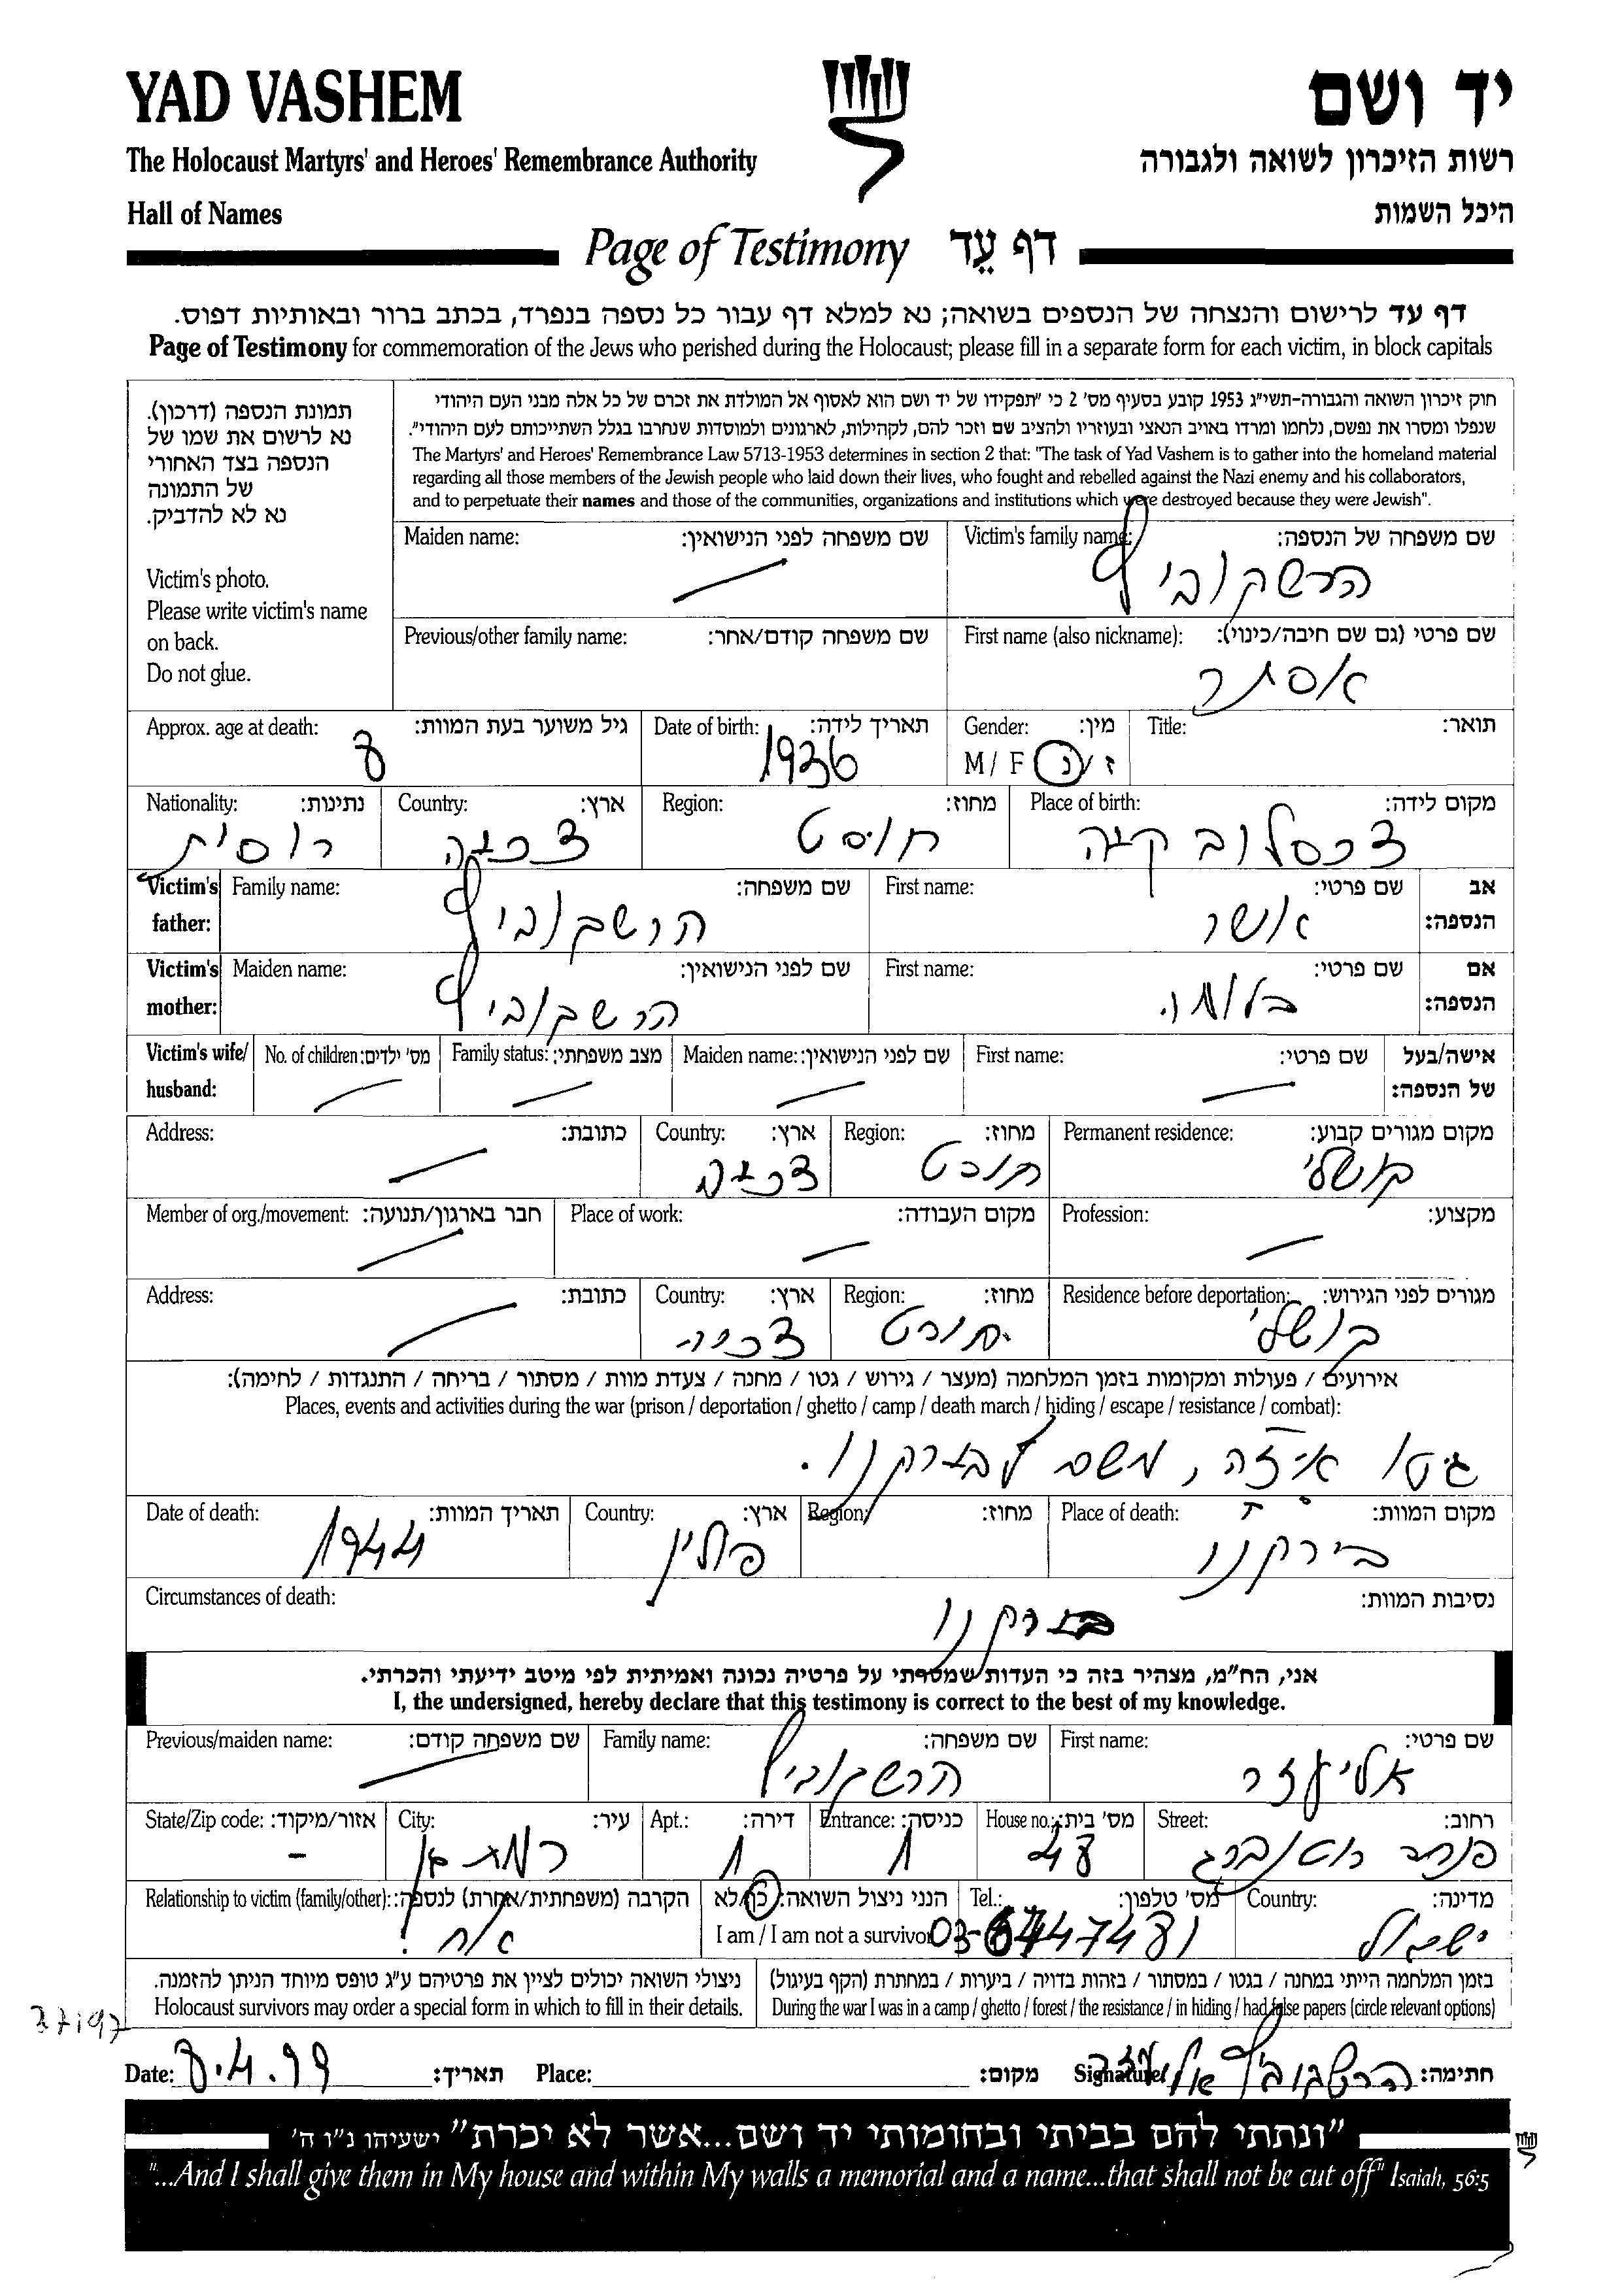 YAD VASHEM יד ושם
The Holocaust Martyrs' and Heroes' Remembrance Authority רשות הזיכרון לשואה ולגבורה
Hall of Names היכל השמות
Page of Testimony דף עֵד
דף עד לרישום והנצחה של הנספים בשואה; נא למלא דף עבור כל נספה בנפרד, בכתב ברור ובאותיות דפוס.
Page of Testimony for commemoration of the Jews who perished during the Holocaust; please fill in a separate form for each victim, in block capitals
תמונת הנספה (דרכון).
נא לרשום את שמו של
הנספה בצד האחורי
של התמונה
נא לא להדביק.
Victim's photo.
Please write victim's name
on back.
Do not glue.
חוק זיכרון השואה והגבורה-תשי"ג 1953 קובע בסעיף מס' 2 כי "תפקידו של יד ושם הוא לאסוף אל המולדת את זכרם של כל אלה מבני העם היהודי
שנפלו ומסרו את נפשם, נלחמו ומרדו באויב הנאצי ובעוזריו ולהציב שם וזכר להם, לקהילות, לארגונים ולמוסדות שנחרבו בגלל השתייכותם לעם היהודי".
The Martyrs' and Heroes' Remembrance Law 5713-1953 determines in section 2 that: "The task of Yad Vashem is to gather into the homeland material
regarding all those members of the Jewish people who laid down their lives, who fought and rebelled against the Nazi enemy and his collaborators,
and to perpetuate their names and those of the communities, organizations and institutions which were destroyed because they were Jewish".
Victim's family name: שם משפחה של הנספה: Maiden name: שם משפחה לפני הנישואין:
הרשקוביץ
First name (also nickname): שם פרטי (גם שם חיבה/כינוי): Previous/other family name: שם משפחה קודם/אחר:
אסתר
Title: תואר: Gender: מין: Date of birth: תאריך לידה: Approx. age at death: גיל משוער בעת המוות:
M / F ז / נ 1936 8
Place of birth: מקום לידה: Region: מחוז: Country: ארץ: Nationality: נתינות:
צכסלובקיה חוסט צכיה רוסית
Victim's father: אב הנספה: First name: שם פרטי: Family name: שם משפחה:
אשר הרשקוביץ
Victim's mother: אם הנספה: First name: שם פרטי: Maiden name: שם לפני הנישואין:
בלומה הרשקוביץ
Victim's wife/ husband: אישה/בעל של הנספה: First name: שם פרטי: Maiden name: שם לפני הנישואין: Family status: מצב משפחתי: No. of children: מס' ילדים:
Permanent residence: מקום מגורים קבוע: Region: מחוז: Country: ארץ: Address: כתובת:
קושלי צכיה
Profession: מקצוע: Place of work: מקום העבודה: Member of org./movement: חבר בארגון/תנועה:
Residence before deportation: מגורים לפני הגירוש: Region: מחוז: Country: ארץ: Address: כתובת:
קושלי צכיה
אירועים / פעולות ומקומות בזמן המלחמה (מעצר / גירוש / גטו / מחנה / צעדת מוות / מסתור / בריחה / התנגדות / לחימה):
Places, events and activities during the war (prison / deportation / ghetto / camp / death march / hiding / escape / resistance / combat):
גיטו איזה, משם לבירקנו.
Place of death: מקום המוות: Region: מחוז: Country: ארץ: Date of death: תאריך המוות:
בירקנו פולין 1944
Circumstances of death: נסיבות המוות:
בירקנו
אני, הח"מ, מצהיר בזה כי העדות שמסרתי על פרטיה נכונה ואמיתית לפי מיטב ידיעתי והכרתי.
I, the undersigned, hereby declare that this testimony is correct to the best of my knowledge.
First name: שם פרטי: Family name: שם משפחה: Previous/maiden name: שם משפחה קודם:
אליעזר הרשקוביץ
Street: רחוב: House no.: מס' בית: Entrance: כניסה: Apt.: דירה: City: עיר: State/Zip code: אזור/מיקוד:
פנחס רוטנברג 48 1 1 רמת גן -
Country: מדינה: Tel.: מס' טלפון: הנני ניצול השואה: כן/לא Relationship to victim (family/other): הקרבה (משפחתית/אחרת) לנספה:
ישראל 03-6747481 I am / I am not a survivor אח!
בזמן המלחמה הייתי במחנה / בגטו / במסתור / בזהות בדויה / ביערות / במחתרת (הקף בעיגול)
During the war I was in a camp / ghetto / forest / the resistance / in hiding / had false papers (circle relevant options)
ניצולי השואה יכולים לציין את פרטיהם ע"ג טופס מיוחד הניתן להזמנה.
Holocaust survivors may order a special form in which to fill in their details.
Date: 8.4.99 תאריך: Place: מקום: Signature: הרשקוביץ אליעזר חתימה:
"ונתתי להם בביתי ובחומותי יד ושם...אשר לא יכרת" ישעיהו נ"ו ה'
"...And I shall give them in My house and within My walls a memorial and a name...that shall not be cut off" Isaiah, 56:5